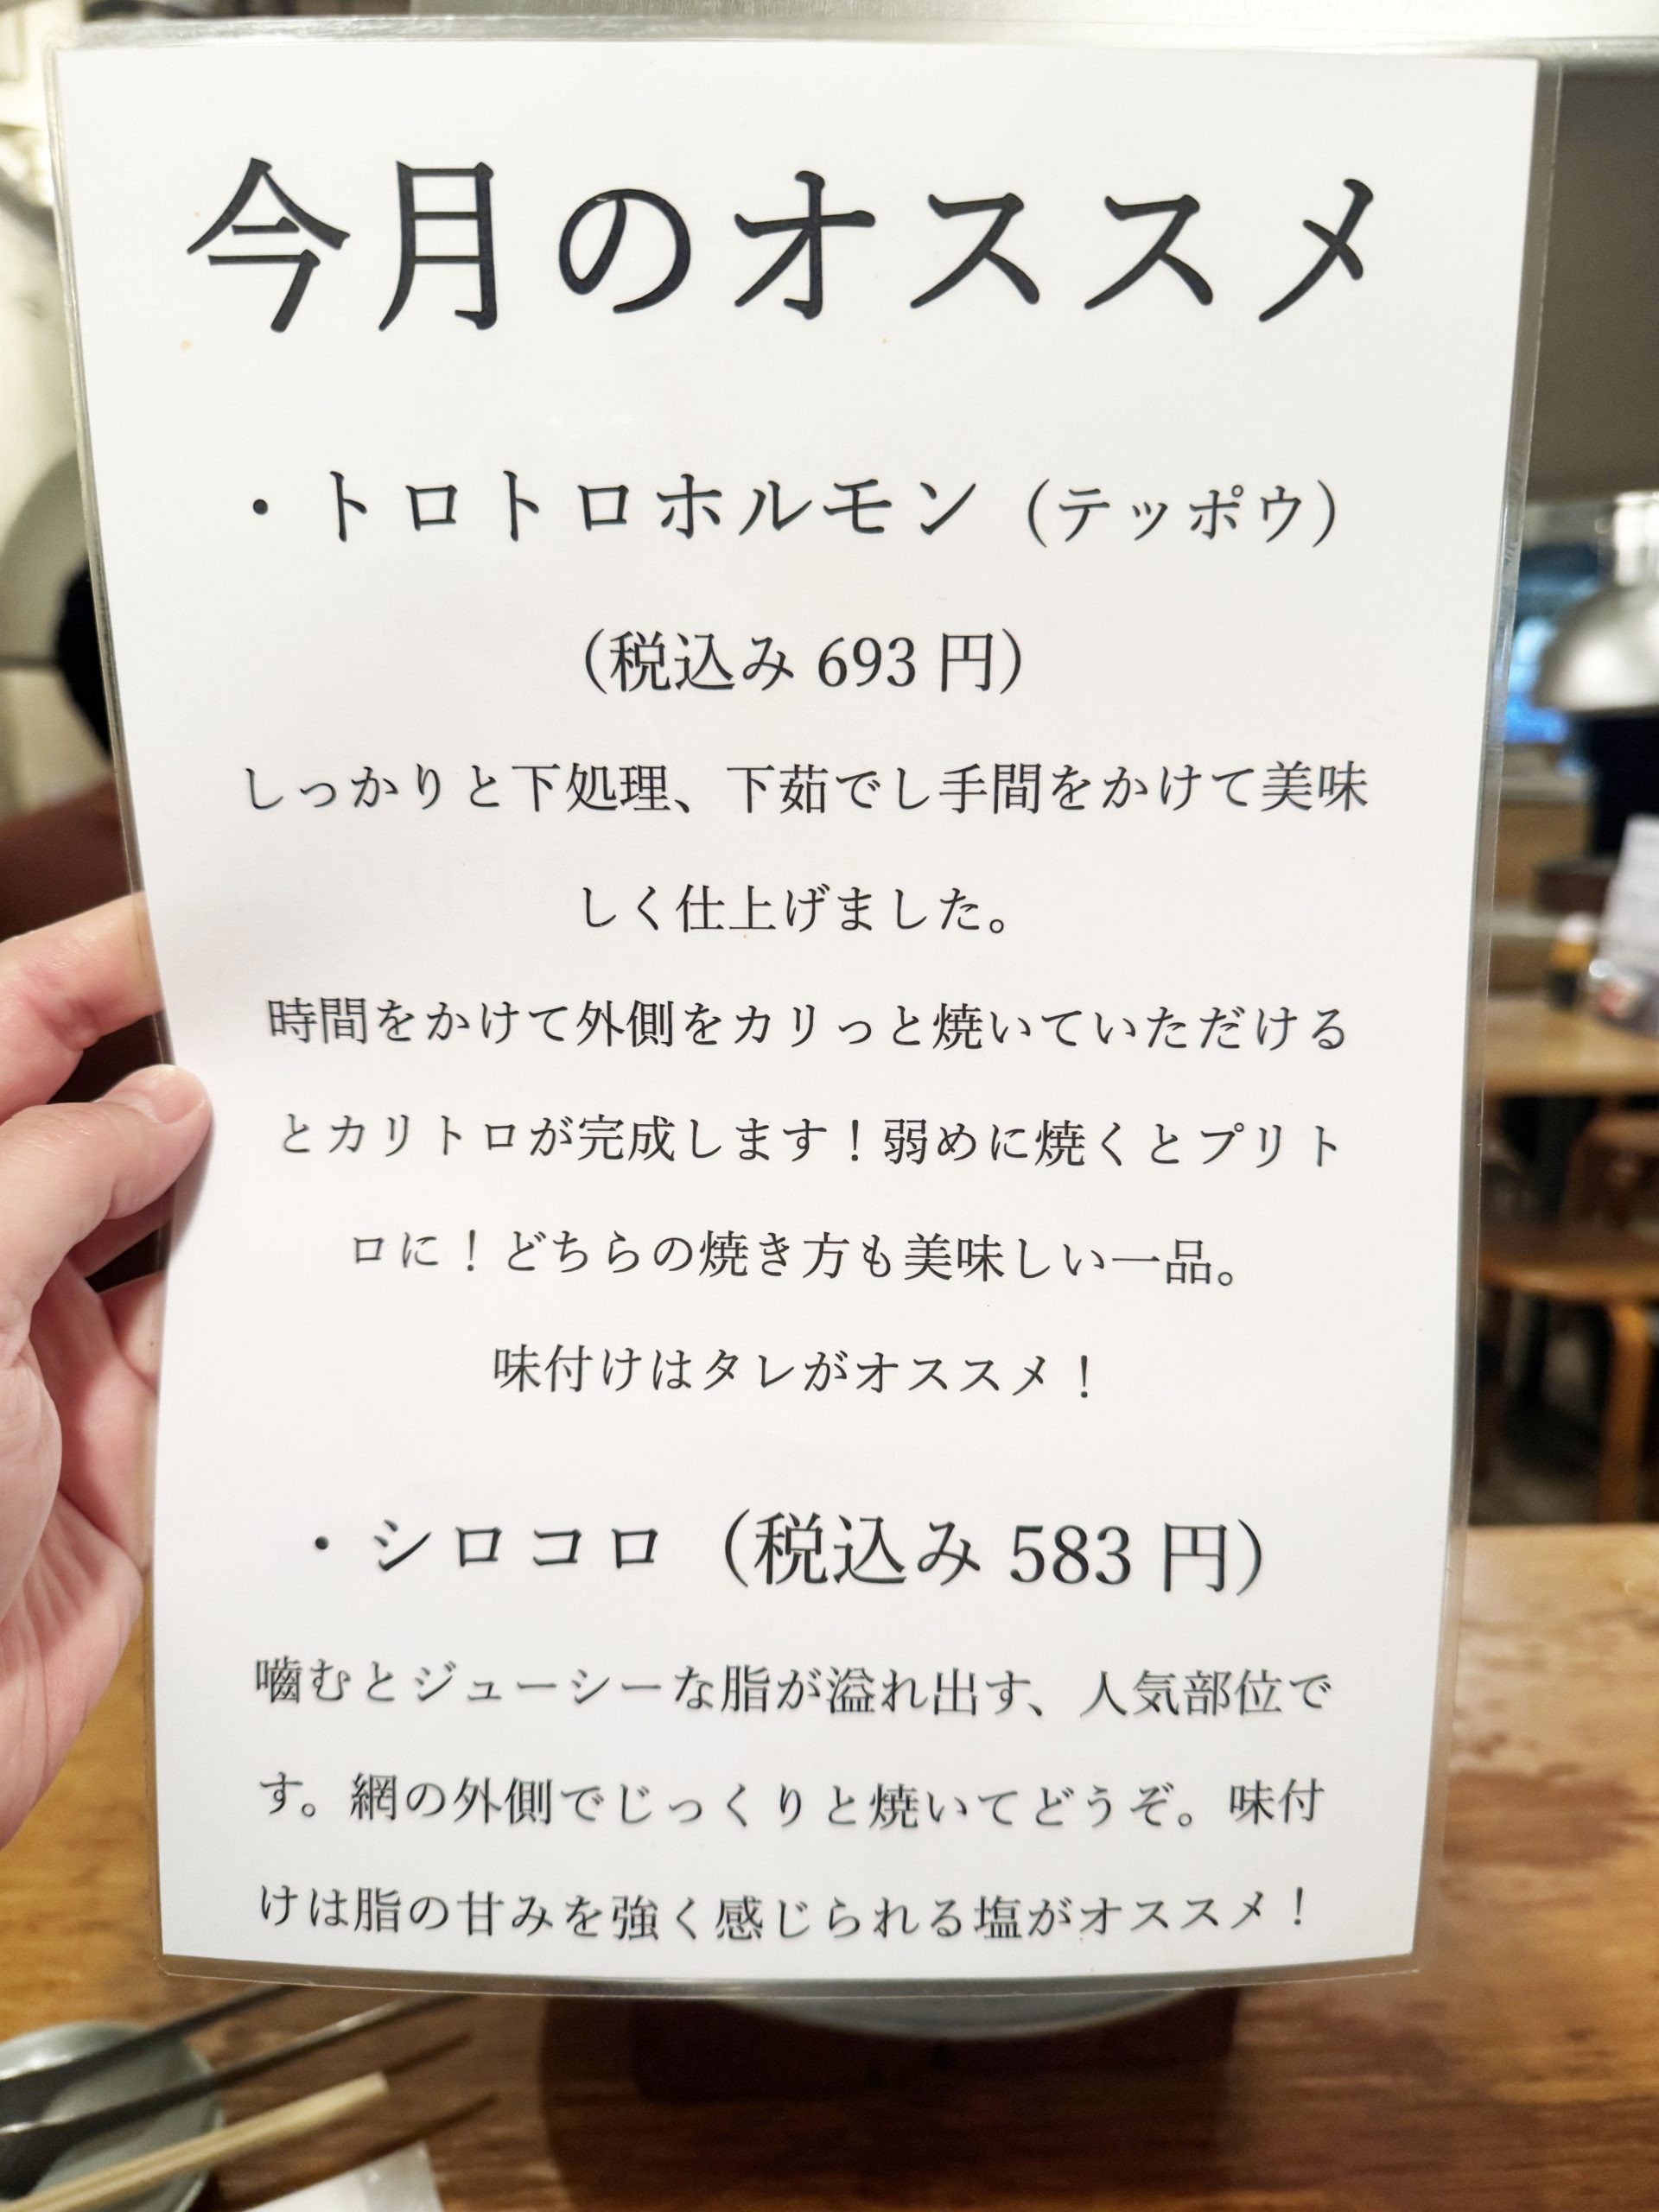 今月のオススメ
・トロトロホルモン（テッポウ）
（税込み 693 円）
しっかりと下処理、下茹でし手間をかけて美味
しく仕上げました。
時間をかけて外側をカリっと焼いていただける
とカリトロが完成します！弱めに焼くとプリト
ロに！どちらの焼き方も美味しい一品。
味付けはタレがオススメ！
・シロコロ（税込み 583 円）
嚙むとジューシーな脂が溢れ出す、人気部位で
す。網の外側でじっくりと焼いてどうぞ。味付
けは脂の甘みを強く感じられる塩がオススメ！